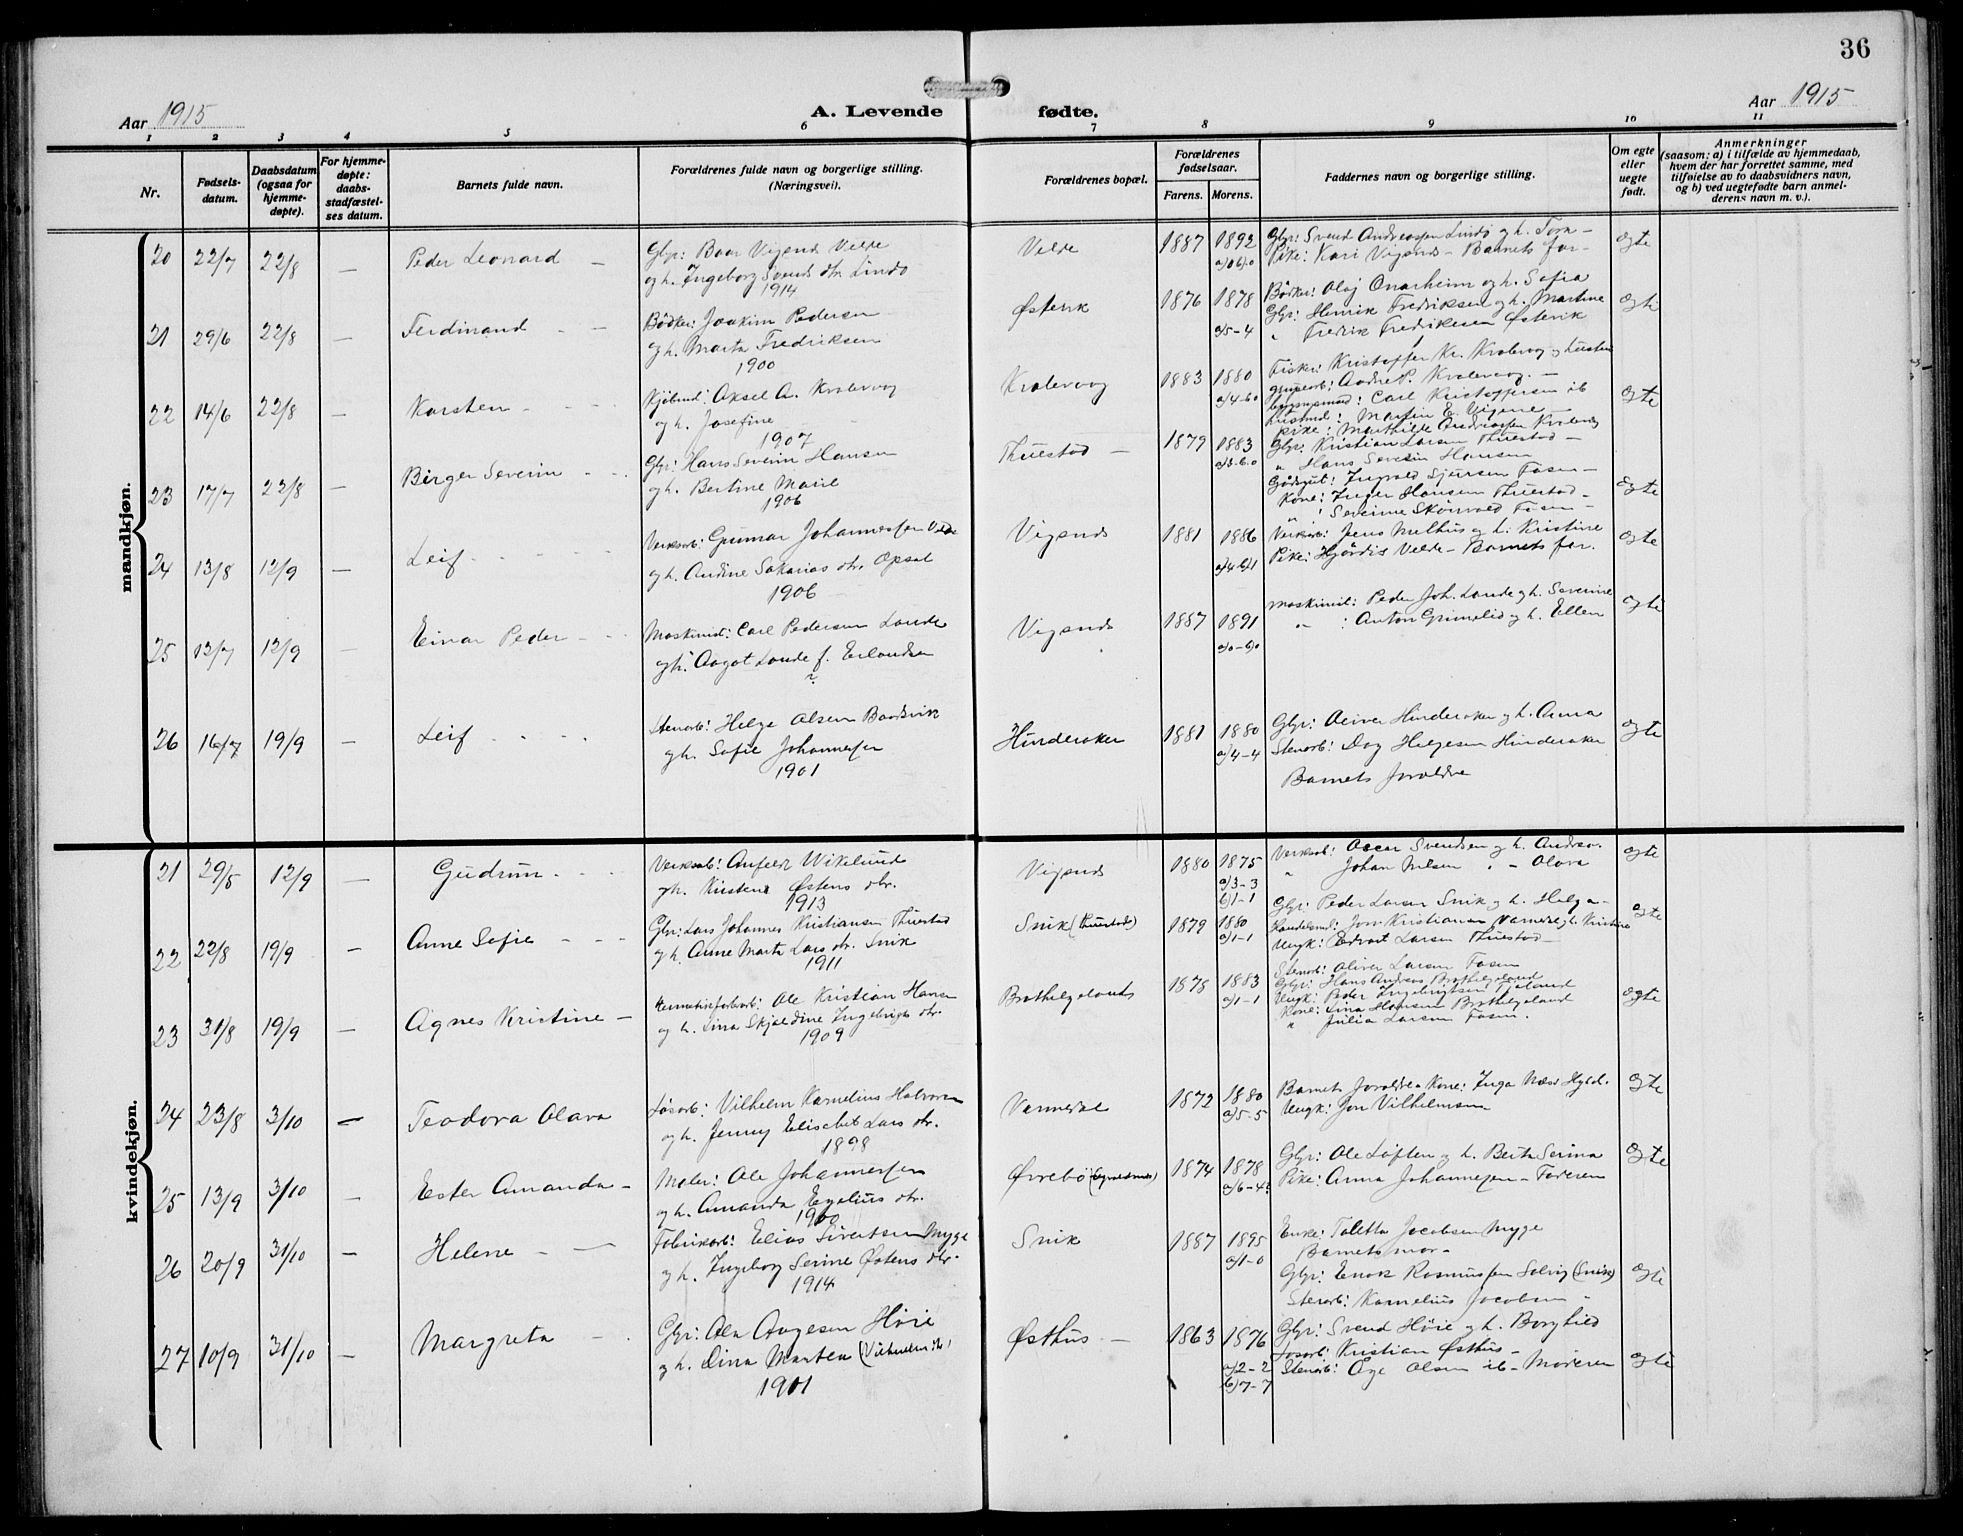 36
Aar 1915
A. Levende fødte.
Aar 1915
1 2 3 4 5 6 7 8 9 10 11
Nr.
Fødsels-
datum.
Daabsdatum
(ogsaa for
hjemme-
døpte).
For hjemme-
døpte:
daabs-
stadfæstel-
ses datum.
Barnets fulde navn.
Forældrenes fulde navn og borgerlige stilling.
(Næringsvei).
Forældrenes bopæl.
Forældrenes
fødselsaar.
Farens. Morens.
Faddernes navn og borgerlige stilling.
Om egte
eller
uegte
født.
Anmerkninger
(saasom: a) i tilfælde av hjemmedaab,
hvem der har forrettet samme, med
tilføielse av to daabsvidners navn,
og b) ved uegtefødte barn anmel-
derens navn m. v.).
mandkjøn.
20 22/7 22/8 — Peder Leonard —
Gbr: Baar Vigsnes Velde
og h. Ingeborg Svends dtr. Lindø
1914
Velde 1887 1892
Gbr: Svend Andreassen Lindø og h. Tora —
Pike: Kari Vigsnes — Barnets far —
egte
21 29/6 22/8 — Ferdinand — —
Bødker: Joakim Pedersen
og h. Marta Fredriksen
1900
Østevik 1876 1878
a)5-4
Bødker: Olaj Onarheim og h. Sofia
Gbr: Henrik Fredriksen og h. Martine
" Fredrik Fredriksen Østevik
egte
22 14/6 22/8 — Karsten — —
Aksel A. Kralevaag
og h. Josefine
1907
Kralevaag 1883 1880
a)4-6)0
Fisker: Kristoffer Kr. Kralevaag
Andr. P. Kralevaag. —
Carl Kristoffersen ib
Martin E. Vigsnes —
Pike: Mathilde Andreassen
egte
23 17/7 22/8 — Birger Severin — —
Gbr: Hans Severin Hansen
og h. Bertine Marie
1906
Thuestad — 1879 1883
Gbr: Kristian Larsen Thuestad —
" Hans Severin Hansen
Ingvald Sjursen Fosen —
Kone: Inger Hansen Thuestad —
" Severine Skönvold Fosen —
egte
24 13/8 12/9 — Leif —
Verksarb: Gunnar Johannessen Velde
og h. Andine Sakarias dtr. Opsal
1906
Vigsnes 1881 1886
Verksarb: Jens Melhus og h. Kristine
Pike: Hjördis Velde — Barnets far.
egte
25 13/7 12/9 — Einar Peder — —
Maskinist: Carl Pedersen Lande
og h. Aagot Lande f. Erlandsen
?
Vigsnes 1887 1891
a)0-6)0
Maskinist: Peder Joh. Lande og h. Severine
" : Anton Grimelid og h. Ellen
egte
26 16/7 19/9 — Leif — —
Stenarb: Helge Olsen Baadsvik
og h. Sofie Johannessen
1901
Hinderaker 1881 1880
a)4-4
Gbr: Hinderaker og h. Anna
Stenarb: Dag Helgesen Hinderaker
Barnets foraldre
egte
kvindekjøn.
21 29/5 12/9 — Gudrun — —
Verksarb: Wikelund
og h. Kirstena Østens dtr.
1913
Vigsnes 1880 1875
a)3-3
b)1-1
Verksarb: Oscar Svendsen og h. Andrea.
" Johan Nilsen " — Olava
egte
22 22/8 19/9 — Anne Sofie — —
Gbr: Lars Johannes Kristiansen Thuestad
og h. Anne Marta Lars dtr. Snik
1911
Snik (Thuestad) 1879 1880
a)1-1
Gbr: Peder Larsen Snik og h. Helga —
Handelsmd: Kristiansen Varnedal og h. Kristine
Ungk: Edvart Larsen Thuestad —
egte
23 31/8 19/9 — Agnes Kristine —
Hermetikfabarb: Ole Kristian Hansen
og h. Lina Skjoldine Ingebrigts dtr.
1909
Brathelgelands 1878 1883
a)1-1
Stenarb: Oliver Larsen Fosen
Gbr: Hans Andreas Brathelgeland
Ungk: Peder Ingebrigtsen
Kone: Lina Hansen Brathelgeland
" Julia Larsen Fosen.
egte
24 23/8 3/10 — Teodora Olava
Løsarb: Vilhelm Kornelius Halvorsen
og h. Jenny Elisabet Lars dtr.
1898
Varnedal 1872 1880
a)5-5
Barnets foraldre — Kone: Inga Næss
Ungk: Jon Vilhelmsen
egte
25 13/9 3/10 — Ester Amanda —
Maler: Ole Johannessen
og h. Amanda Eyolius dtr.
1900
Øvrebö 1874 1878
a)6-4
Gbr: Ole Løften og h. Berta Serina
Pike: Anna Johannessen — Faderen
egte
26 20/9 31/10 — Helene — —
Fabrikarb: Elias Sivertsen Myge
og h. Ingeborg Serine Østens dtr.
1914
Snik 1887 1895
a)1-0
Enke: Taletta Jacobsen Myge
Barnets mor —
Gbr: Enok Rasmussen Solvig (Snik)
Stenarb: Kornelius Jacobsen "
egte
27 10/9 31/10 — Margreta —
Gbr: Ola Aagesen Høie
og h. Dina Martea
1901
Østhus — 1863 1876
a)2-2
b)7-7
Gbr: Svend Høie og h. Borghild
Løsarb: Kristian Østhus —
Stenarb: Åge Olsen ib — Moderen
egte